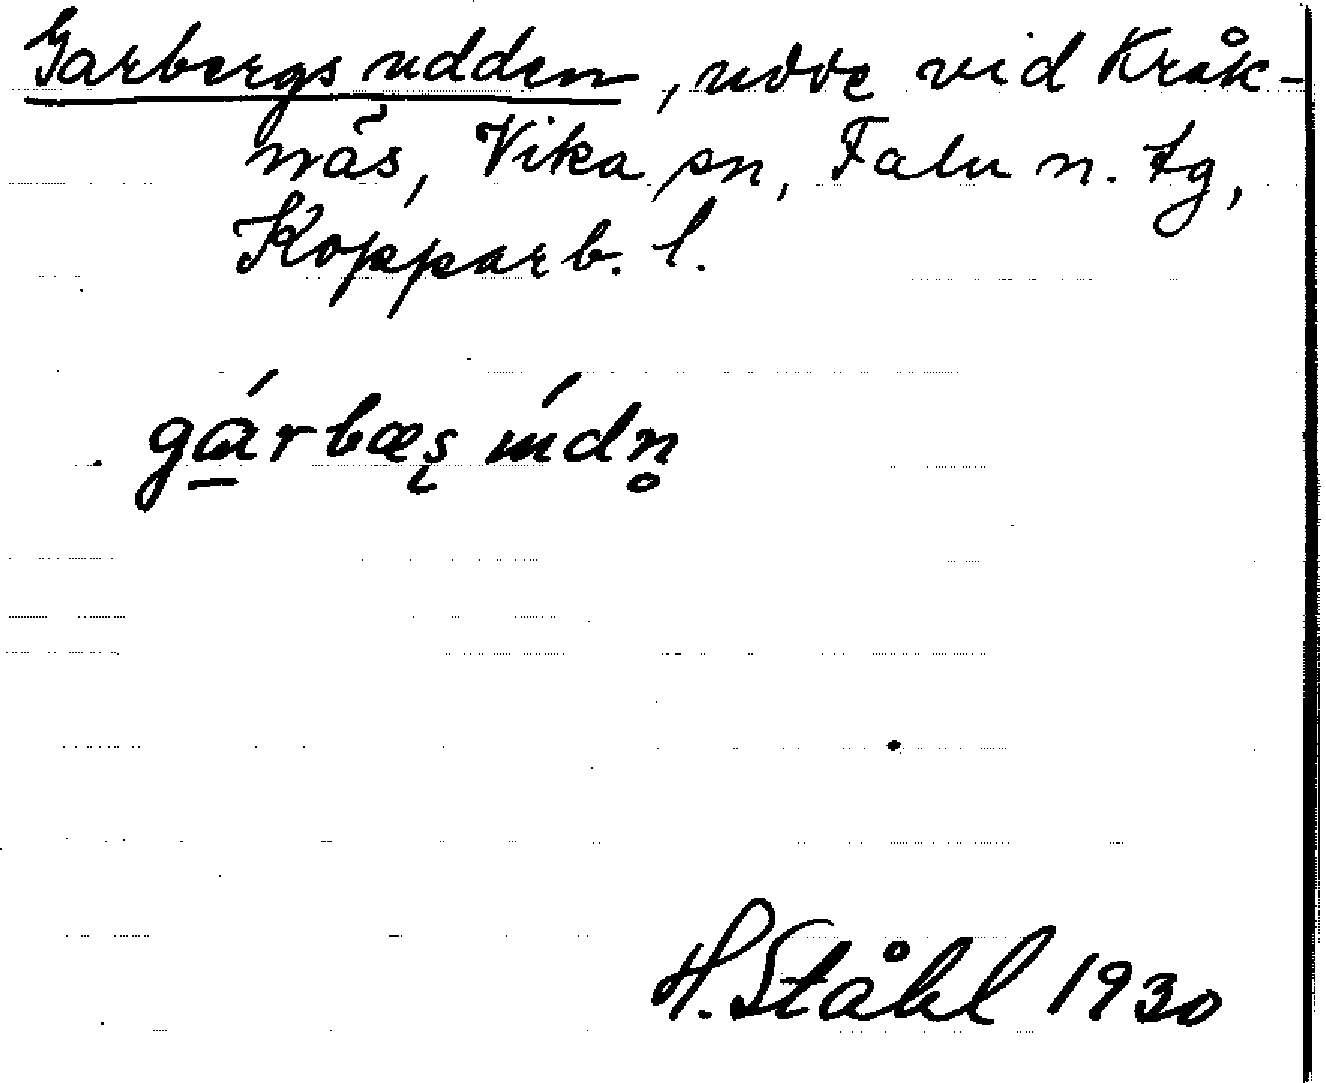 Garbergsudden, udde vid Kråk-
näs, Vika sn, Falu n. tg,
Kopparb. l.
gárbæs údn̥
H. Ståhl 1930